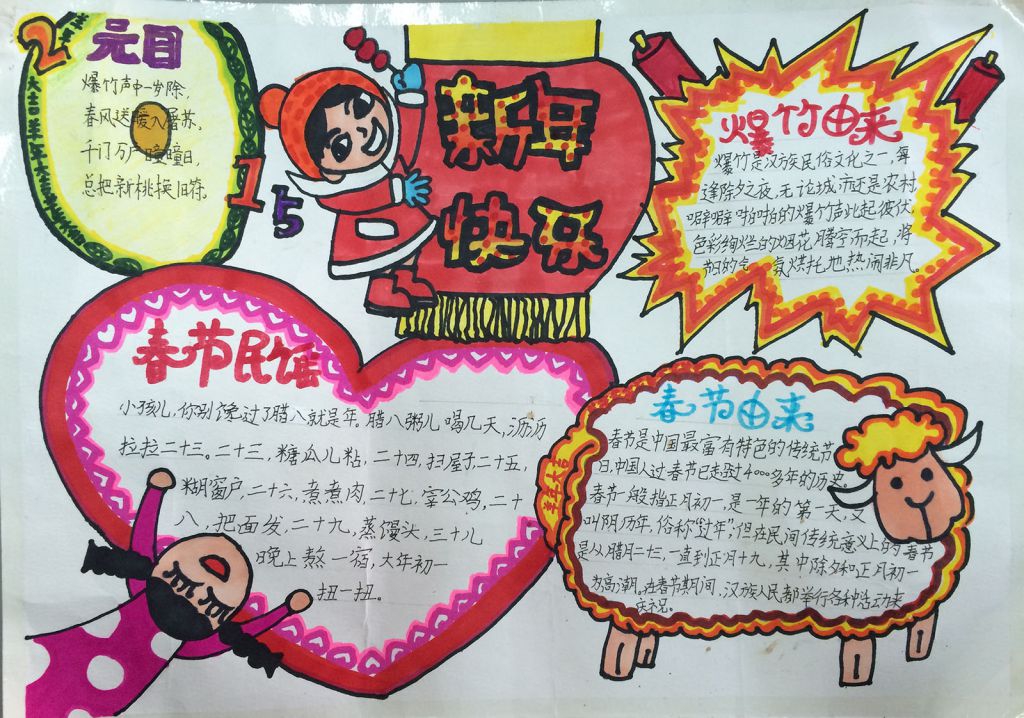 2015
元日
爆竹声中一岁除,
春风送暖入屠苏。
千门万户曈曈日,
总把新桃换旧符。
新年
快乐
爆竹由来
爆竹是汉族民俗文化之一,每
逢除夕之夜,无论城市还是农村
噼噼啪啪的爆竹声此起彼伏,
色彩绚烂的烟花腾空而起,将
节日的气氛烘托地热闹非凡。
春节民谣
小孩儿,你别馋过了腊八就是年。腊八粥儿喝几天,沥沥
拉拉二十三。二十三,糖瓜儿粘,二十四,扫屋子二十五,
糊窗户,二十六,煮煮肉,二十七,宰公鸡,二十
八,把面发,二十九,蒸馒头,三十儿
晚上熬一宿,大年初一
扭一扭。
春节由来
春节是中国最富有特色的传统节
日,中国人过春节已超过4000多年的历史。
春节一般指正月初一,是一年的第一天,又
叫阴历年,俗称“过年”;但在民间传统意义上的春节
是从腊月二十三,一直到正月十九,其中除夕和正月初一
为高潮。在春节期间,汉族人民都举行各种活动来
庆祝。
羊年大吉